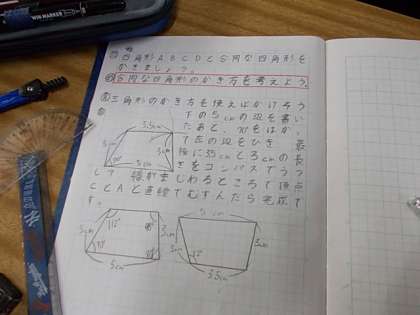 四角形ABCDと合同な四角形を
かきましょう。
合同な四角形のかき方を考えよう。
三角形のかき方を使えばかけそう
下の5cmの辺を書い
たあと、70°をはか
て左の辺をひき、最
後に3.5cmと3cmの長
さをコンパスでうつ
して線がまじわるところで頂点
CとAと直線でむすんだら完成で
す。
3.5cm
3cm
70°
5cm
3cm
70°
5cm
5cm
3cm
3cm
3.5cm
WIN MARKER